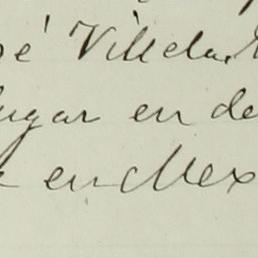 sé Villela,
lugar en de
en Mex